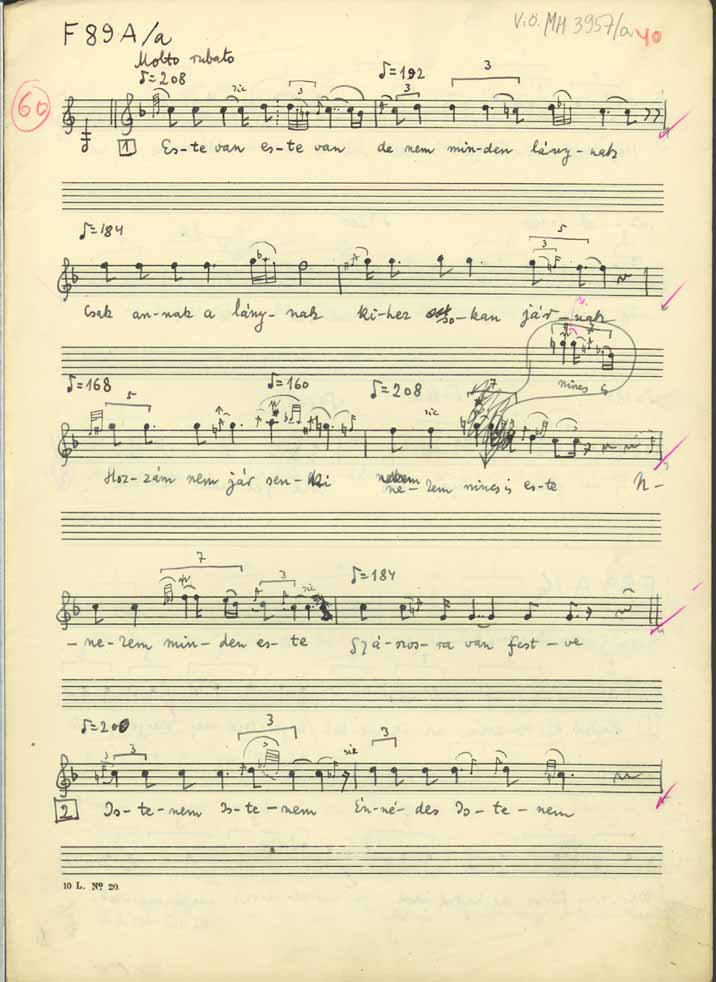 F 89 A/a
V.ö. MH 3957/a 40
Molto rubato
♪=208 ♪=192 3
60 sic 3 3
1 Es-te van es-te van de nem min-den lány-nak
♪=184 5
3
Csak an-nak a lány-nak ki-hez so-kan jár-nak
nincs is
♪=168 5 ♪=160 ♪=208 7
sic
Hoz-zám nem jár sen-ki ne-kem nincs is es-te N-
7 3 sic ♪=184
-ne-kem min-den es-te Gyá-szos-ra van fest-ve
♪=200
3 3 3 sic 3
2 Is-te-nem Is-te-nem Én-né-des Is-te-nem
10 L. Nº 20.